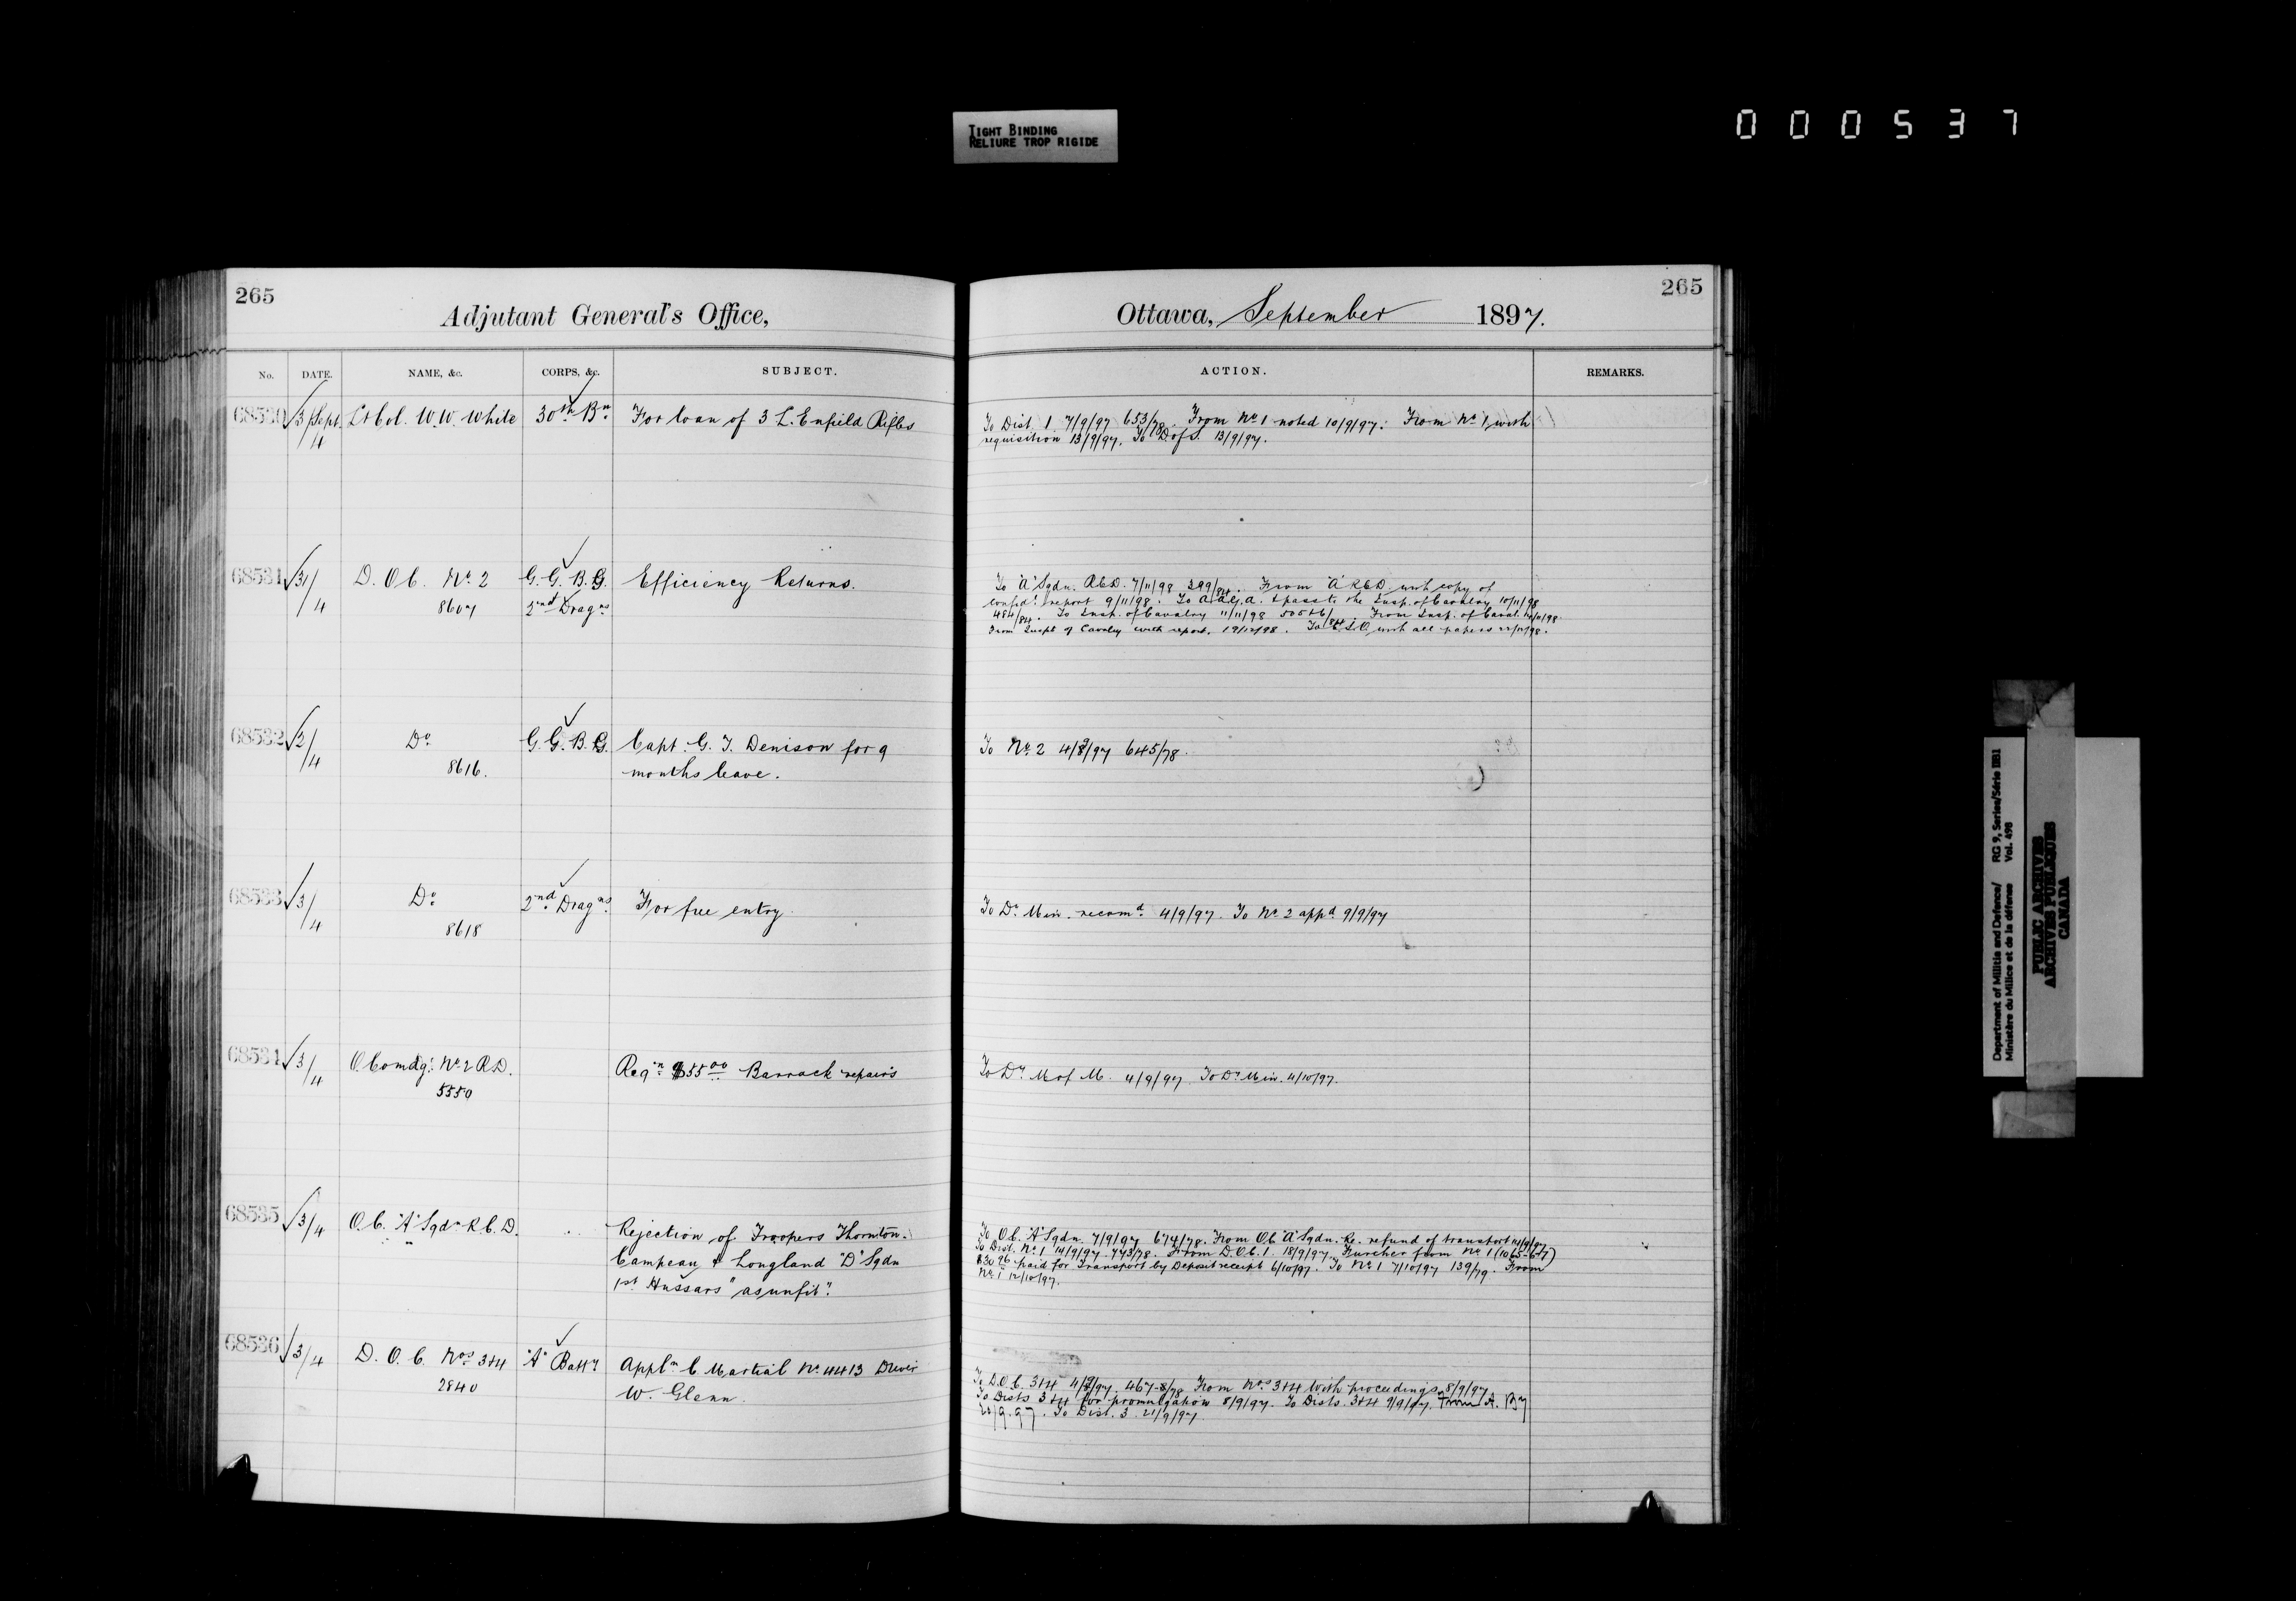 TIGHT BINDING
RELIURE TROP RIGIDE
000537
265
Adjutant General's Office,
Ottawa, September 1897.
265
No. DATE. NAME, &c. CORPS, &c. SUBJECT. ACTION. REMARKS.
68530 3/4 Sept. Lt Col. W.W. White 30th Bn For loan of 3 L. Enfield Rifles
To Dist. 1 7/9/97 653/78. From No. 1 noted 10/9/97. From No. 1 with
requisition 13/9/97. To D of S. 13/9/97.
68531 31/4 D. O C. No. 2 G. G. B. G. Efficiency Returns.
8607 2nd Drags
To "A" Sqdn. RCD. 7/11/98 399/84. From "A" RCD. with copy of
confdl report 9/11/98. To A.A.G.A. & pass to the Insp. of Cavalry 10/11/98
484/84. To Insp. of Cavalry 11/11/98 From Insp. of Caval.
From Inspt of Cavalry with report. 19/12/98. with all papers
68532 2/4 Do G. G. B. G. Capt. G. T. Denison for 9
8616. months leave.
To No. 2 4/9/97 645/78.
68533 3/4 Do 2nd Drags. For free entry
8618
To Dy Min. recomd. 4/9/97. To No. 2 appd 9/9/97
68534 3/4 O Comdg. No. 2 R.D. Reqn. $55.00 Barrack repairs
5550
To Dy M of M. 4/9/97 To Dy Min. 4/10/97.
68535 3/4 O.C. "A" Sqdn R.C.D. Rejection of Troopers Thornton.
Campeau & Longland "D" Sqdn
1st Hussars "as unfit".
To O.C. "A" Sqdn. 7/9/97 674/78. From O.C. "A" Sqdn. Re. refund of transport 14/9/97
To Dist. No. 1 14/9/97 773/78. From D.O.C. 1. 18/9/97. Further from No. 1 (1065-67)
$30.96 paid for Transport by Deposit receipt 6/10/97. To No. 1 7/10/97 139/79. From
No. 1 12/10/97.
68536 3/4 D. O. C. Nos 3+4 "A" Batty Appln C Martial No. 4413 Driver
2840 W. Glenn
To D.O.C. 3+4 4/9/97. 467-8/78 From Nos 3+4 with proceedings 8/9/97
To Dists 3+4 for promulgation 8/9/97. To Dists. 3+4 9/9/97. From A. By
To Dist. 3 21/9/97.
Department of Militia and Defence/ RG 9, Series/Série IIB1
Ministère du Milice et de la défense Vol. 498
PUBLIC ARCHIVES
ARCHIVES PUBLIQUES
CANADA